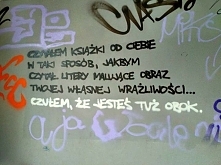 CZYTAŁEM KSIĄŻKI OD CIEBIE
W TAKI SPOSÓB, JAKBYM
CZYTAŁ LITERY MALUJĄCE OBRAZ
TWOJEJ WŁASNEJ WRAŻLIWOŚCI...
CZUŁEM, ŻE JESTEŚ TUŻ OBOK.